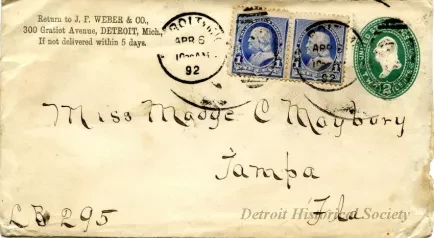 Return to J. P. WEBER & CO.,
300 Gratiot Avenue, DETROIT, Mich.,
If not delivered within 5 days.
APR 6
92
1 1
92
2
Miss Madge C Maybury
Tampa
Fla
L B 295
Detroit Historical Society